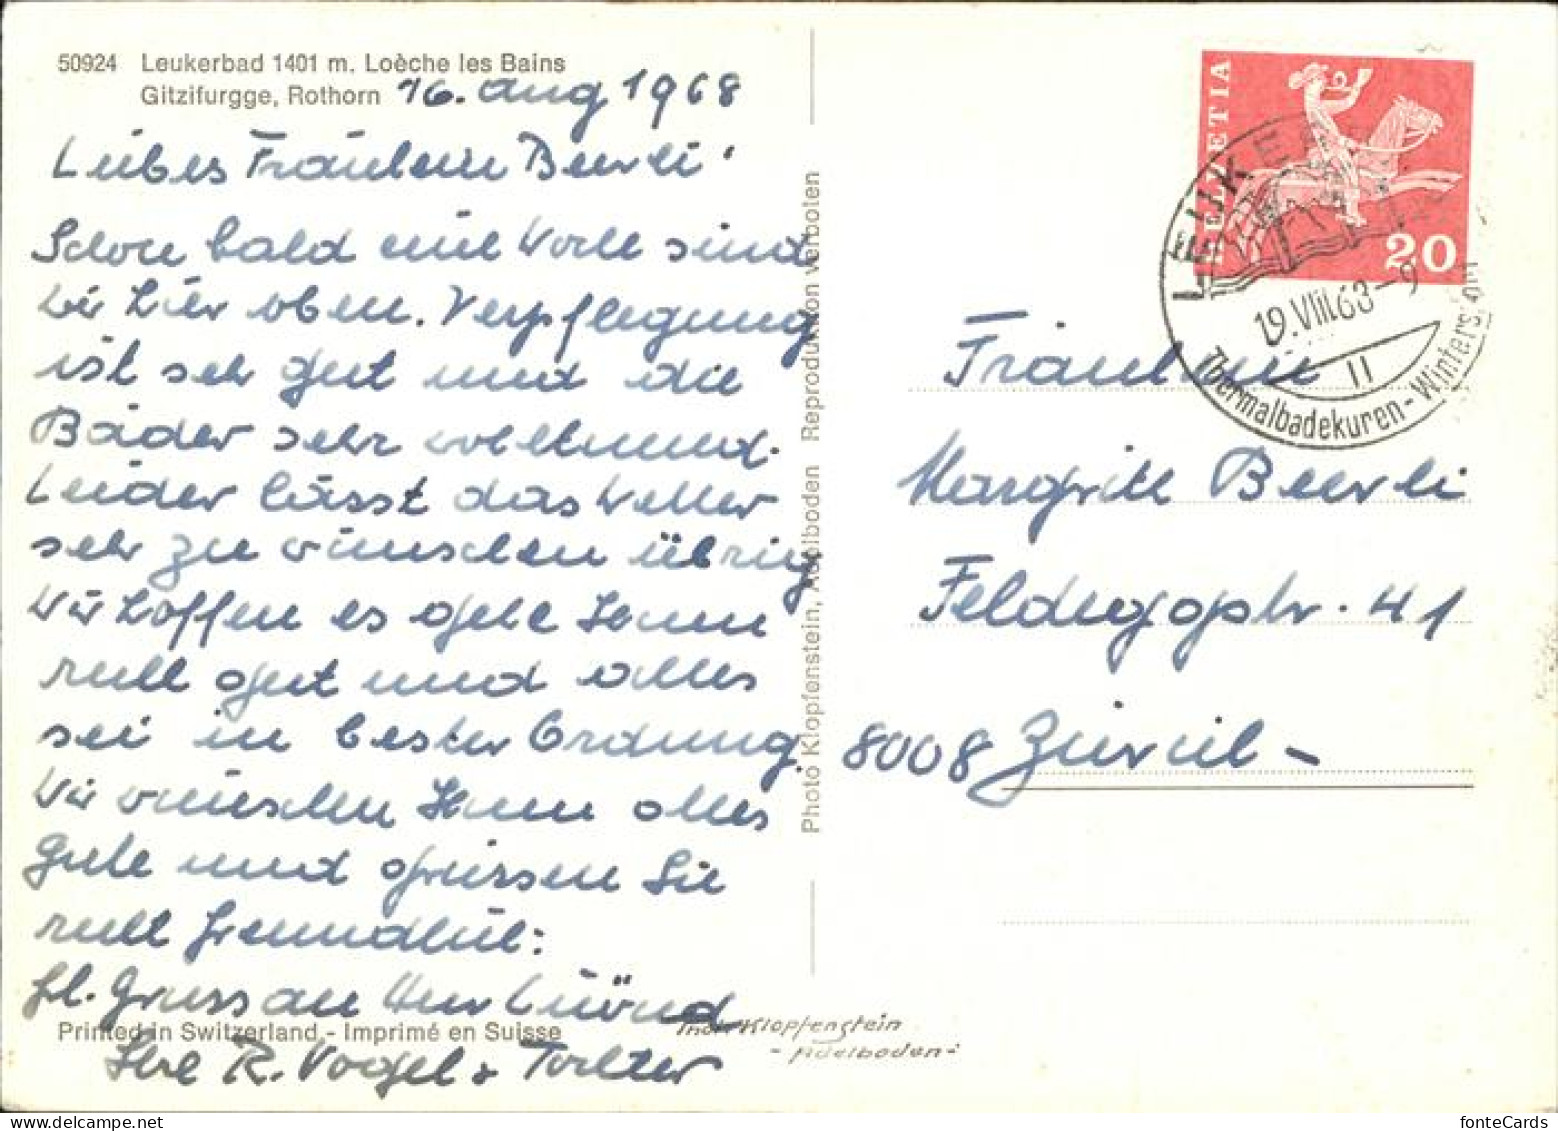 50924 Leukerbad 1401 m. Loèche les Bains
Gitzifurgge, Rothorn 16. Aug 1968
Liebes Fräulein Beerli!
Schon bald eine Woche sind
wir hier oben. Verpflegung
ist sehr gut und die
Bäder sehr wohltuend.
Leider lässt das Wetter
sehr zu wünschen übrig
Wir hoffen es gehe Ihnen
recht gut und alles
sei in bester Ordnung.
Wir wünschen Ihnen alles
gute und grüssen Sie
recht freundlich:
Fl. Gruss an Herr
Ihre R. Vogel & Tochter
Printed in Switzerland - Imprimé en Suisse
Photo Klopfenstein, Adelboden Reproduktion verboten
Phot. Klopfenstein
- Adelboden -
HELVETIA
20
LEUKER
19.VIII.63-9
11
Thermalbadekuren-Wintersport
Fräulein
Margritt Beerli
Feldeggstr. 41
8008 Zürich -
fonteCards